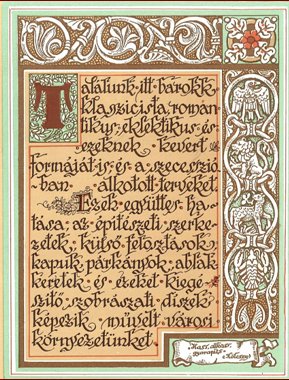 Találunk itt barokk
klasszicista roman-
tikus eklektikus és
ezeknek kevert
formáját is és a szecesszió-
ban alkotott terveket.
Ezek együttes ha-
tása az építészeti szerke-
zetek, külső felosztások
kapuk párkányok ablak
keretek és ezeket kiegé-
szítő szobrászati díszek
képezik művelt városi
környezetünket
Hass, alkoss,
gyarapíts
Kölcsey